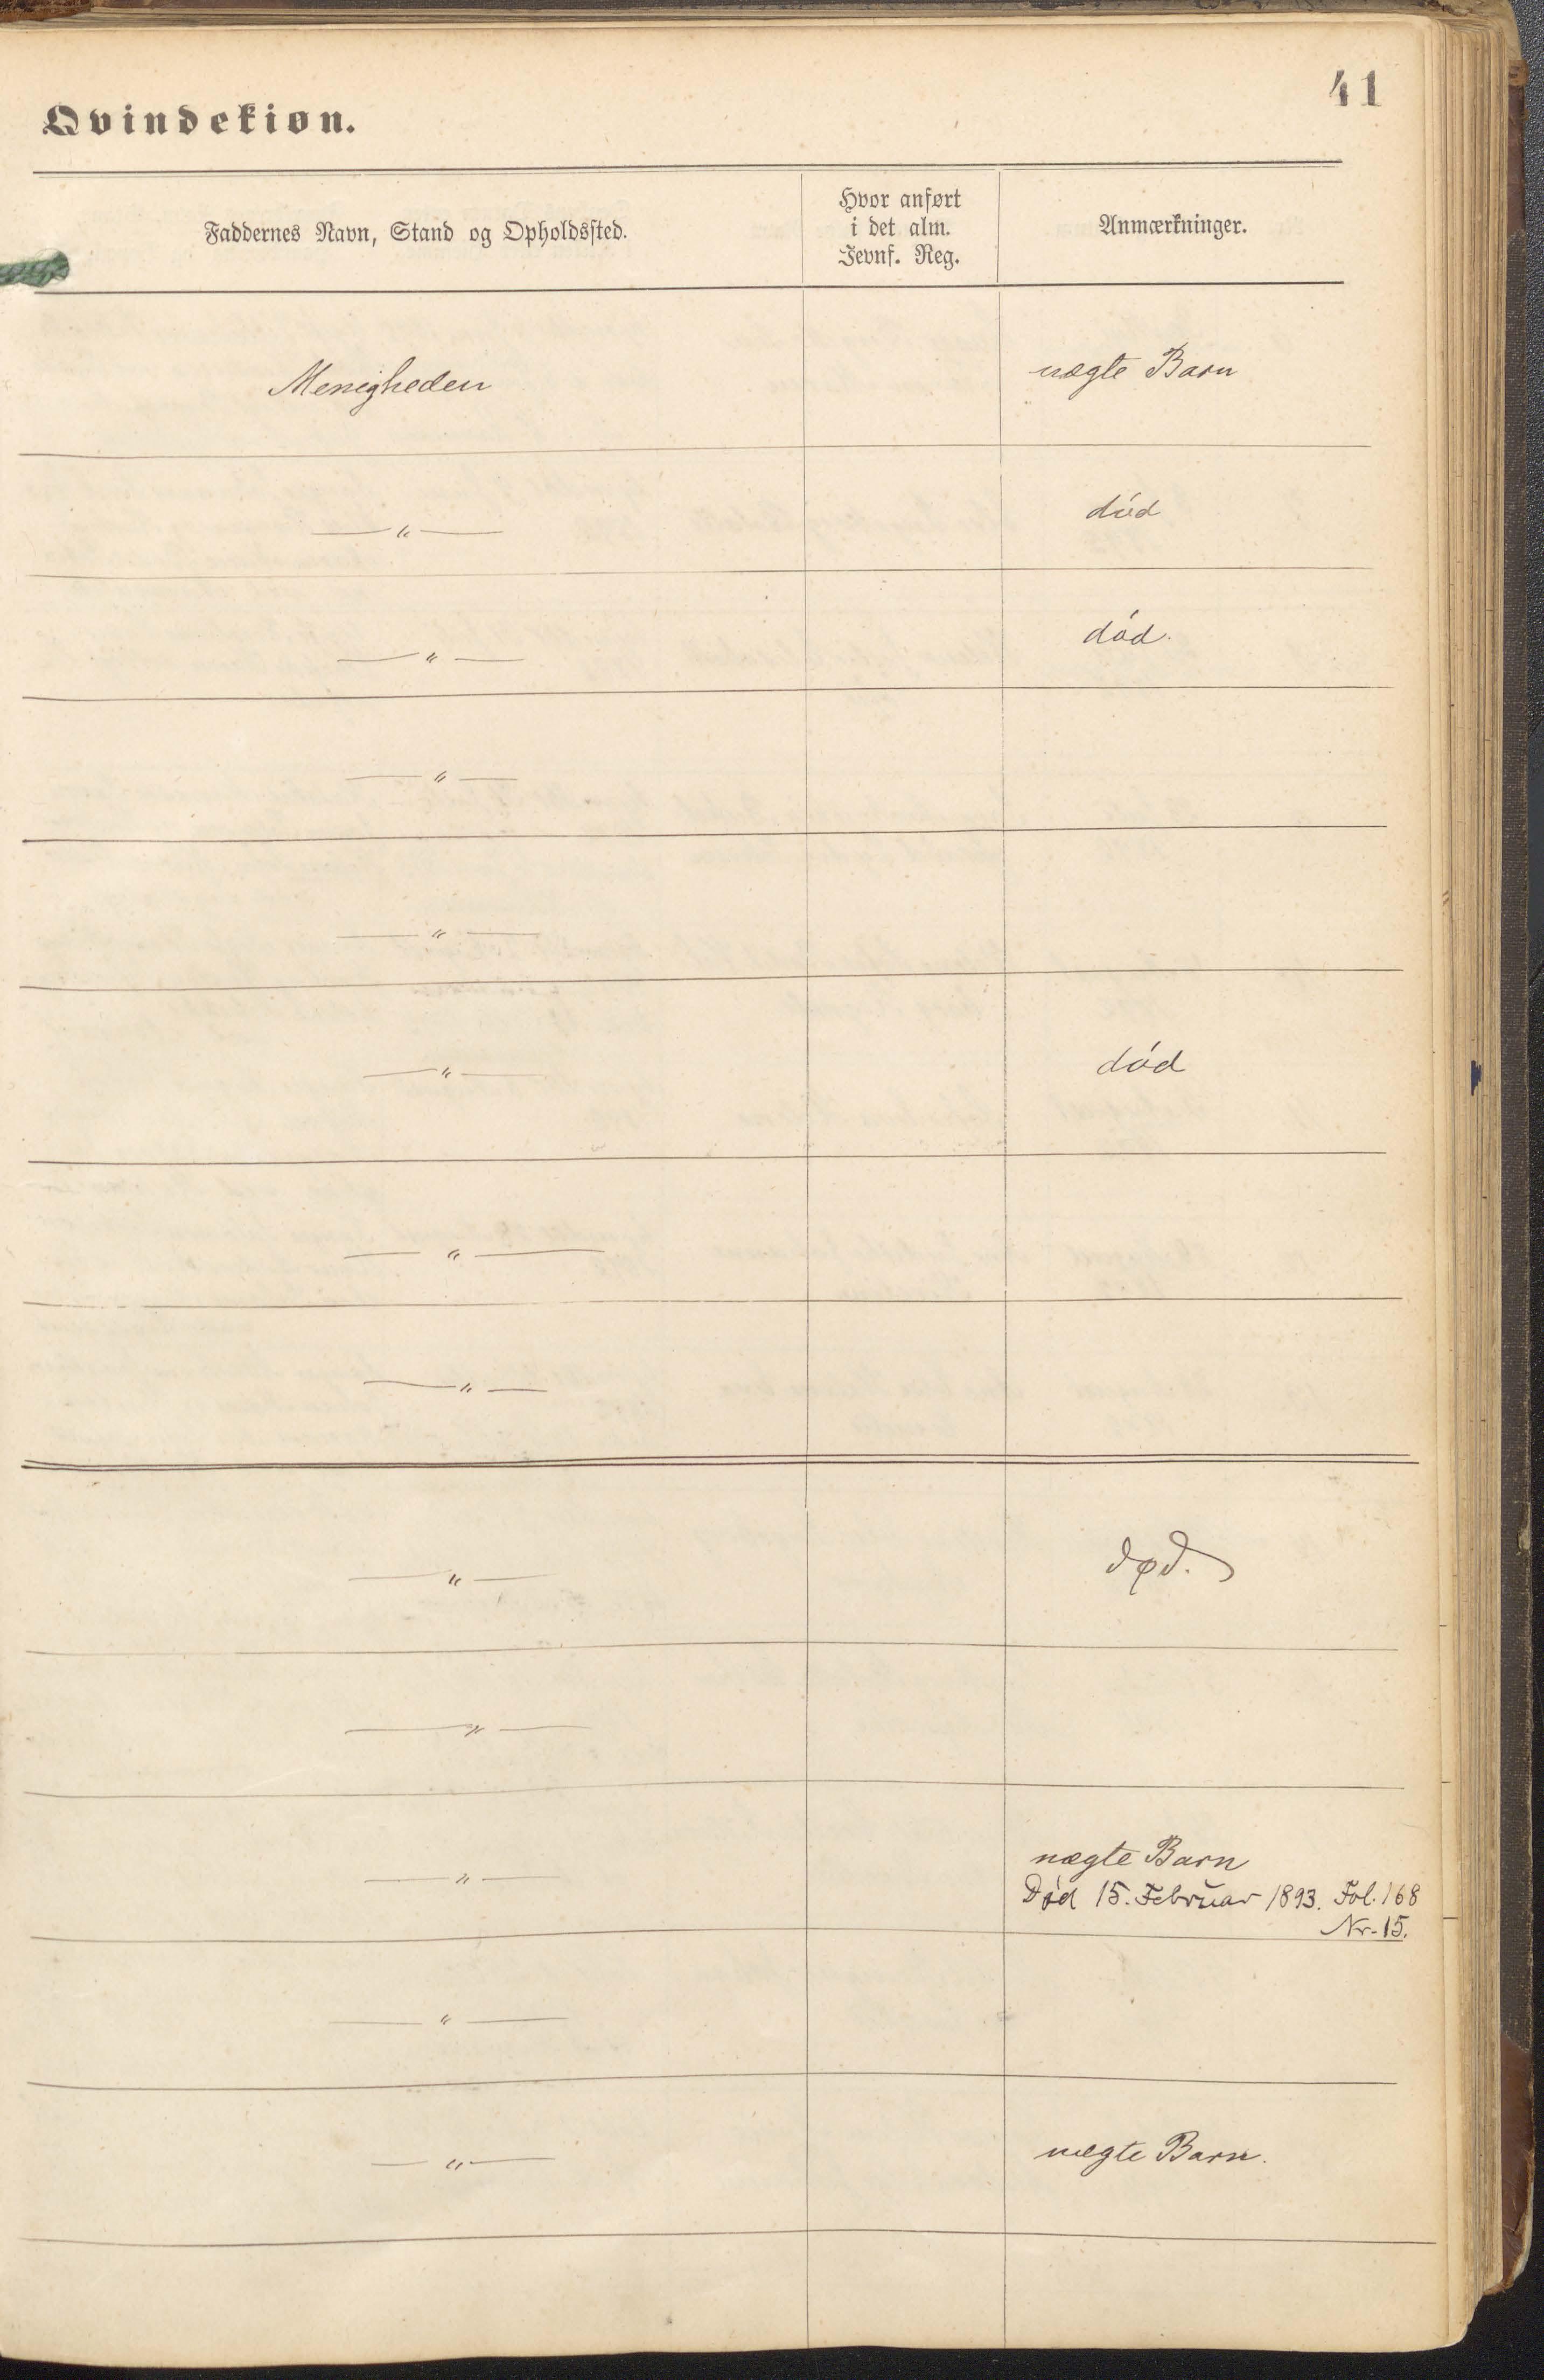 41
Qvindekiøn.
Faddernes Navn, Stand og Opholdssted.
Hvor anført
i det alm.
Jevnf. Reg.
Anmærkninger.
Menigheden
uægte Barn
— " —
død
— " —
død.
— " —
— " —
— " —
død
— " —
— " —
— " —
død.
— " —
— " —
uægte Barn
Død 15. Februar 1893. Fol. 168
Nr. 15.
— " —
— " —
uægte Barn.